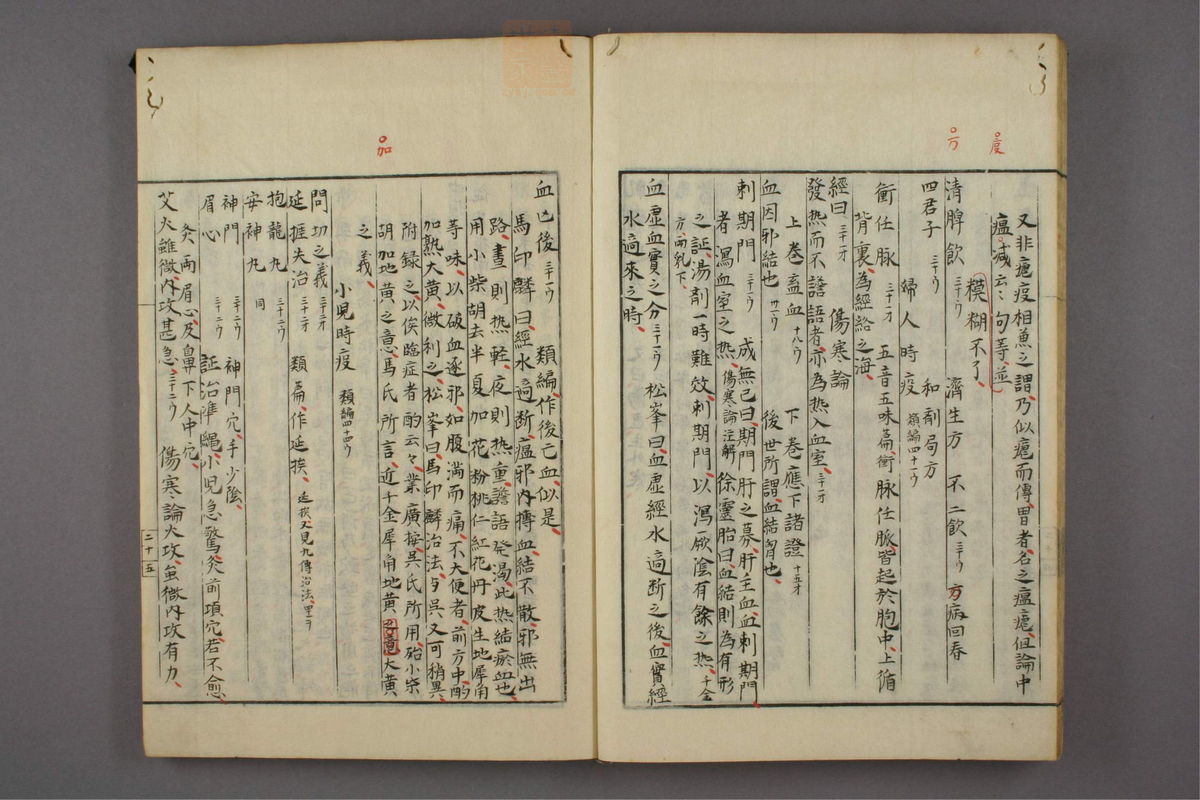 度
方
又非瘧疫相兼之謂乃似瘧而傳胃者名之瘟瘧但論中
瘟減云云句等並
糢糊不了
清脾飲 三十ウ 濟生方 不二飲 三十ウ 方病回春
四君子 三十ウ 和劑局方
婦人時疫 類編四十一ウ
衝任脉 三十一オ 五音五味扁衝脉任脈皆起於胞中上循
背裏為經絡之海
經曰 三十一オ 傷寒論
發热而不譫語者亦為热入血室 三十一オ
上巻畜血 十八ウ 下巻應下諸證 十五オ
血因邪結也 卅一ウ 後世所謂血結胷也
刺期門 三十一ウ 成無己曰期門肝之募肝主血刺期門
者瀉血室之热 傷寒論注解 徐靈胎曰血結則為有形
之証湯劑一時難效刺期門以瀉厥陰有餘之热 千金
方兩乳下
血虚血實之分 三十一ウ 松峯曰血虚經水適断之後血實經
水適來之時
加
血亾後 三十一ウ 類編作後亡血似是
馬印麟曰經水適断瘟邪内搏血結不散邪無出
路晝則热軽夜則热重譫語発渇此热結瘀血也
用小柴胡去半夏加花粉桃仁紅花丹皮生地犀角
等味以破血逐邪如腹満而痛不大便者前方中酌
加熟大黄微利之松峯曰馬印麟治法与呉又可稍異
附録之以俟臨症者酌云々業廣按呉氏所用殆小柴
胡加地黄之意馬氏所言近千金犀角地黄之意大黄
之義
小児時疫 類編四十四ウ
問切之義 三十二オ
延捱失治 三十二オ 類扁作延挨 延挨又見九傳治法
抱龍丸 三十二ウ
安神丸 同
神門 三十二ウ 神門穴手少陰
眉心 三十二ウ 証治準繩小児急驚灸前項穴若不愈
灸兩眉心及鼻下人中穴
艾火雖微内攻甚急 三十二ウ 傷寒論火攻虽微内攻有力
二十五